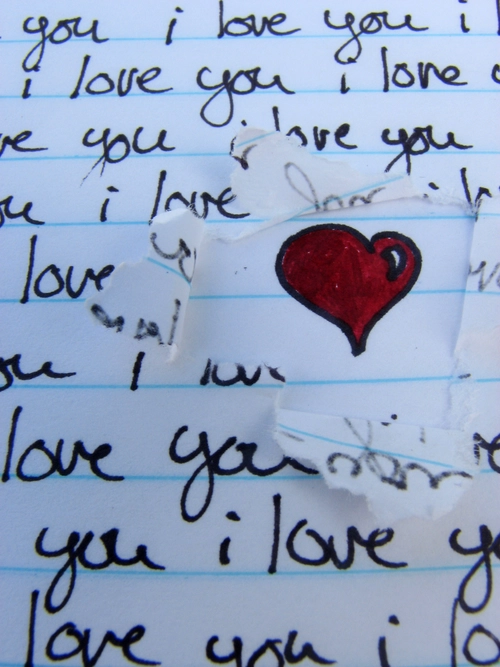 you i love you i
i love you i love
you i love you
i love
love
i
love you
you i love
love you i